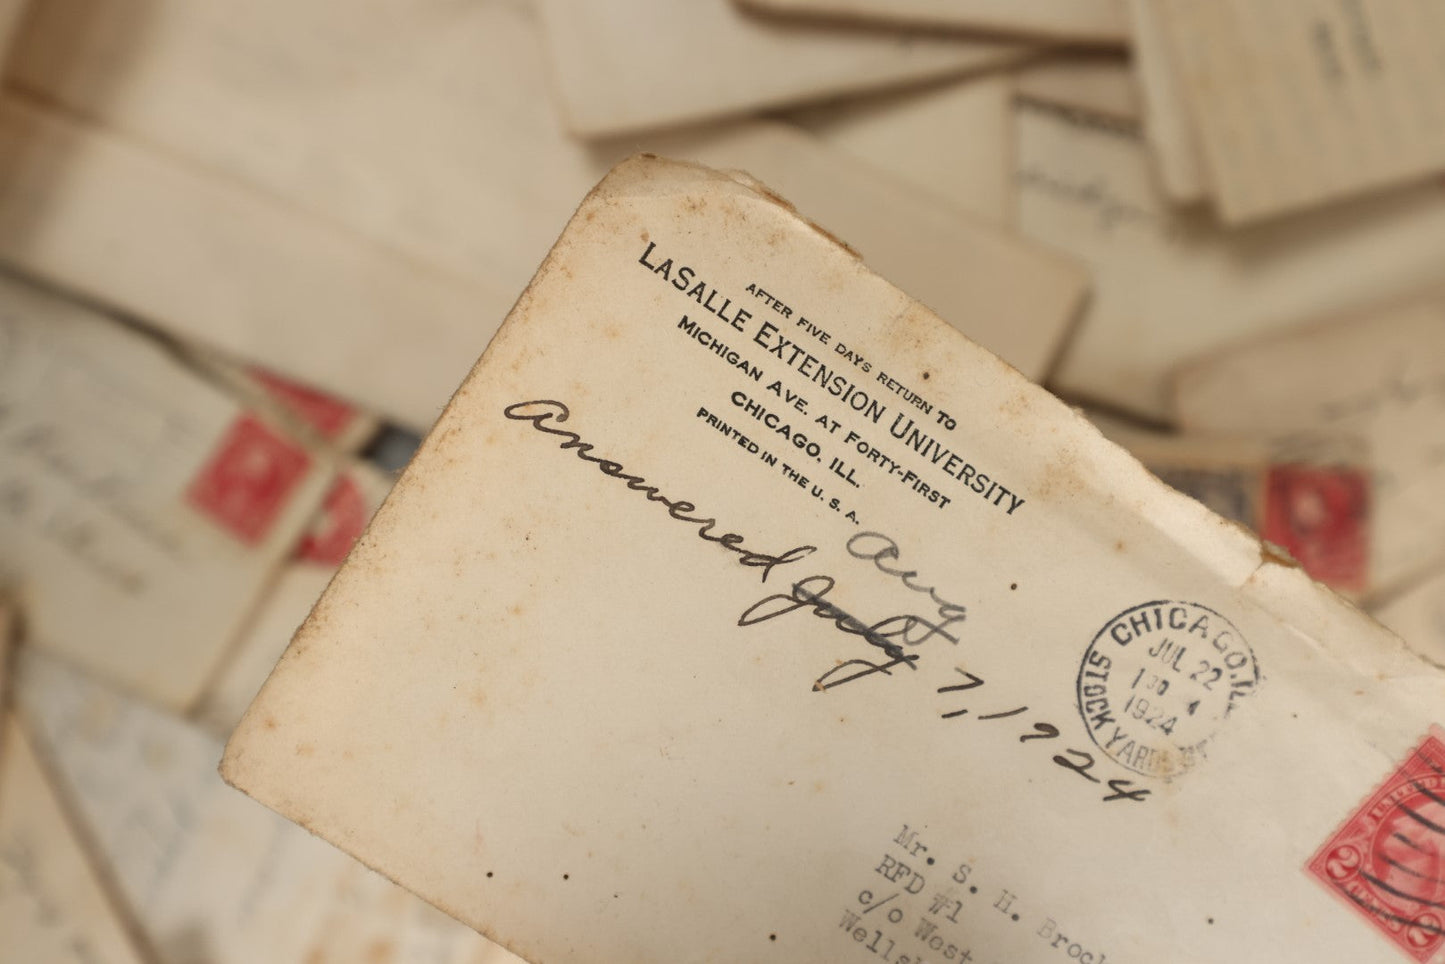 AFTER FIVE DAYS RETURN TO
LASALLE EXTENSION UNIVERSITY
MICHIGAN AVE. AT FORTY-FIRST
CHICAGO, ILL.
PRINTED IN THE U. S. A.
Aug
Answered July 7, 1924
CHICAGO, ILL
JUL 22
1 30
1924
STOCK YARDS
Mr. S. H. Brock
RFD #1
c/o West
Wells
2 CENTS 2